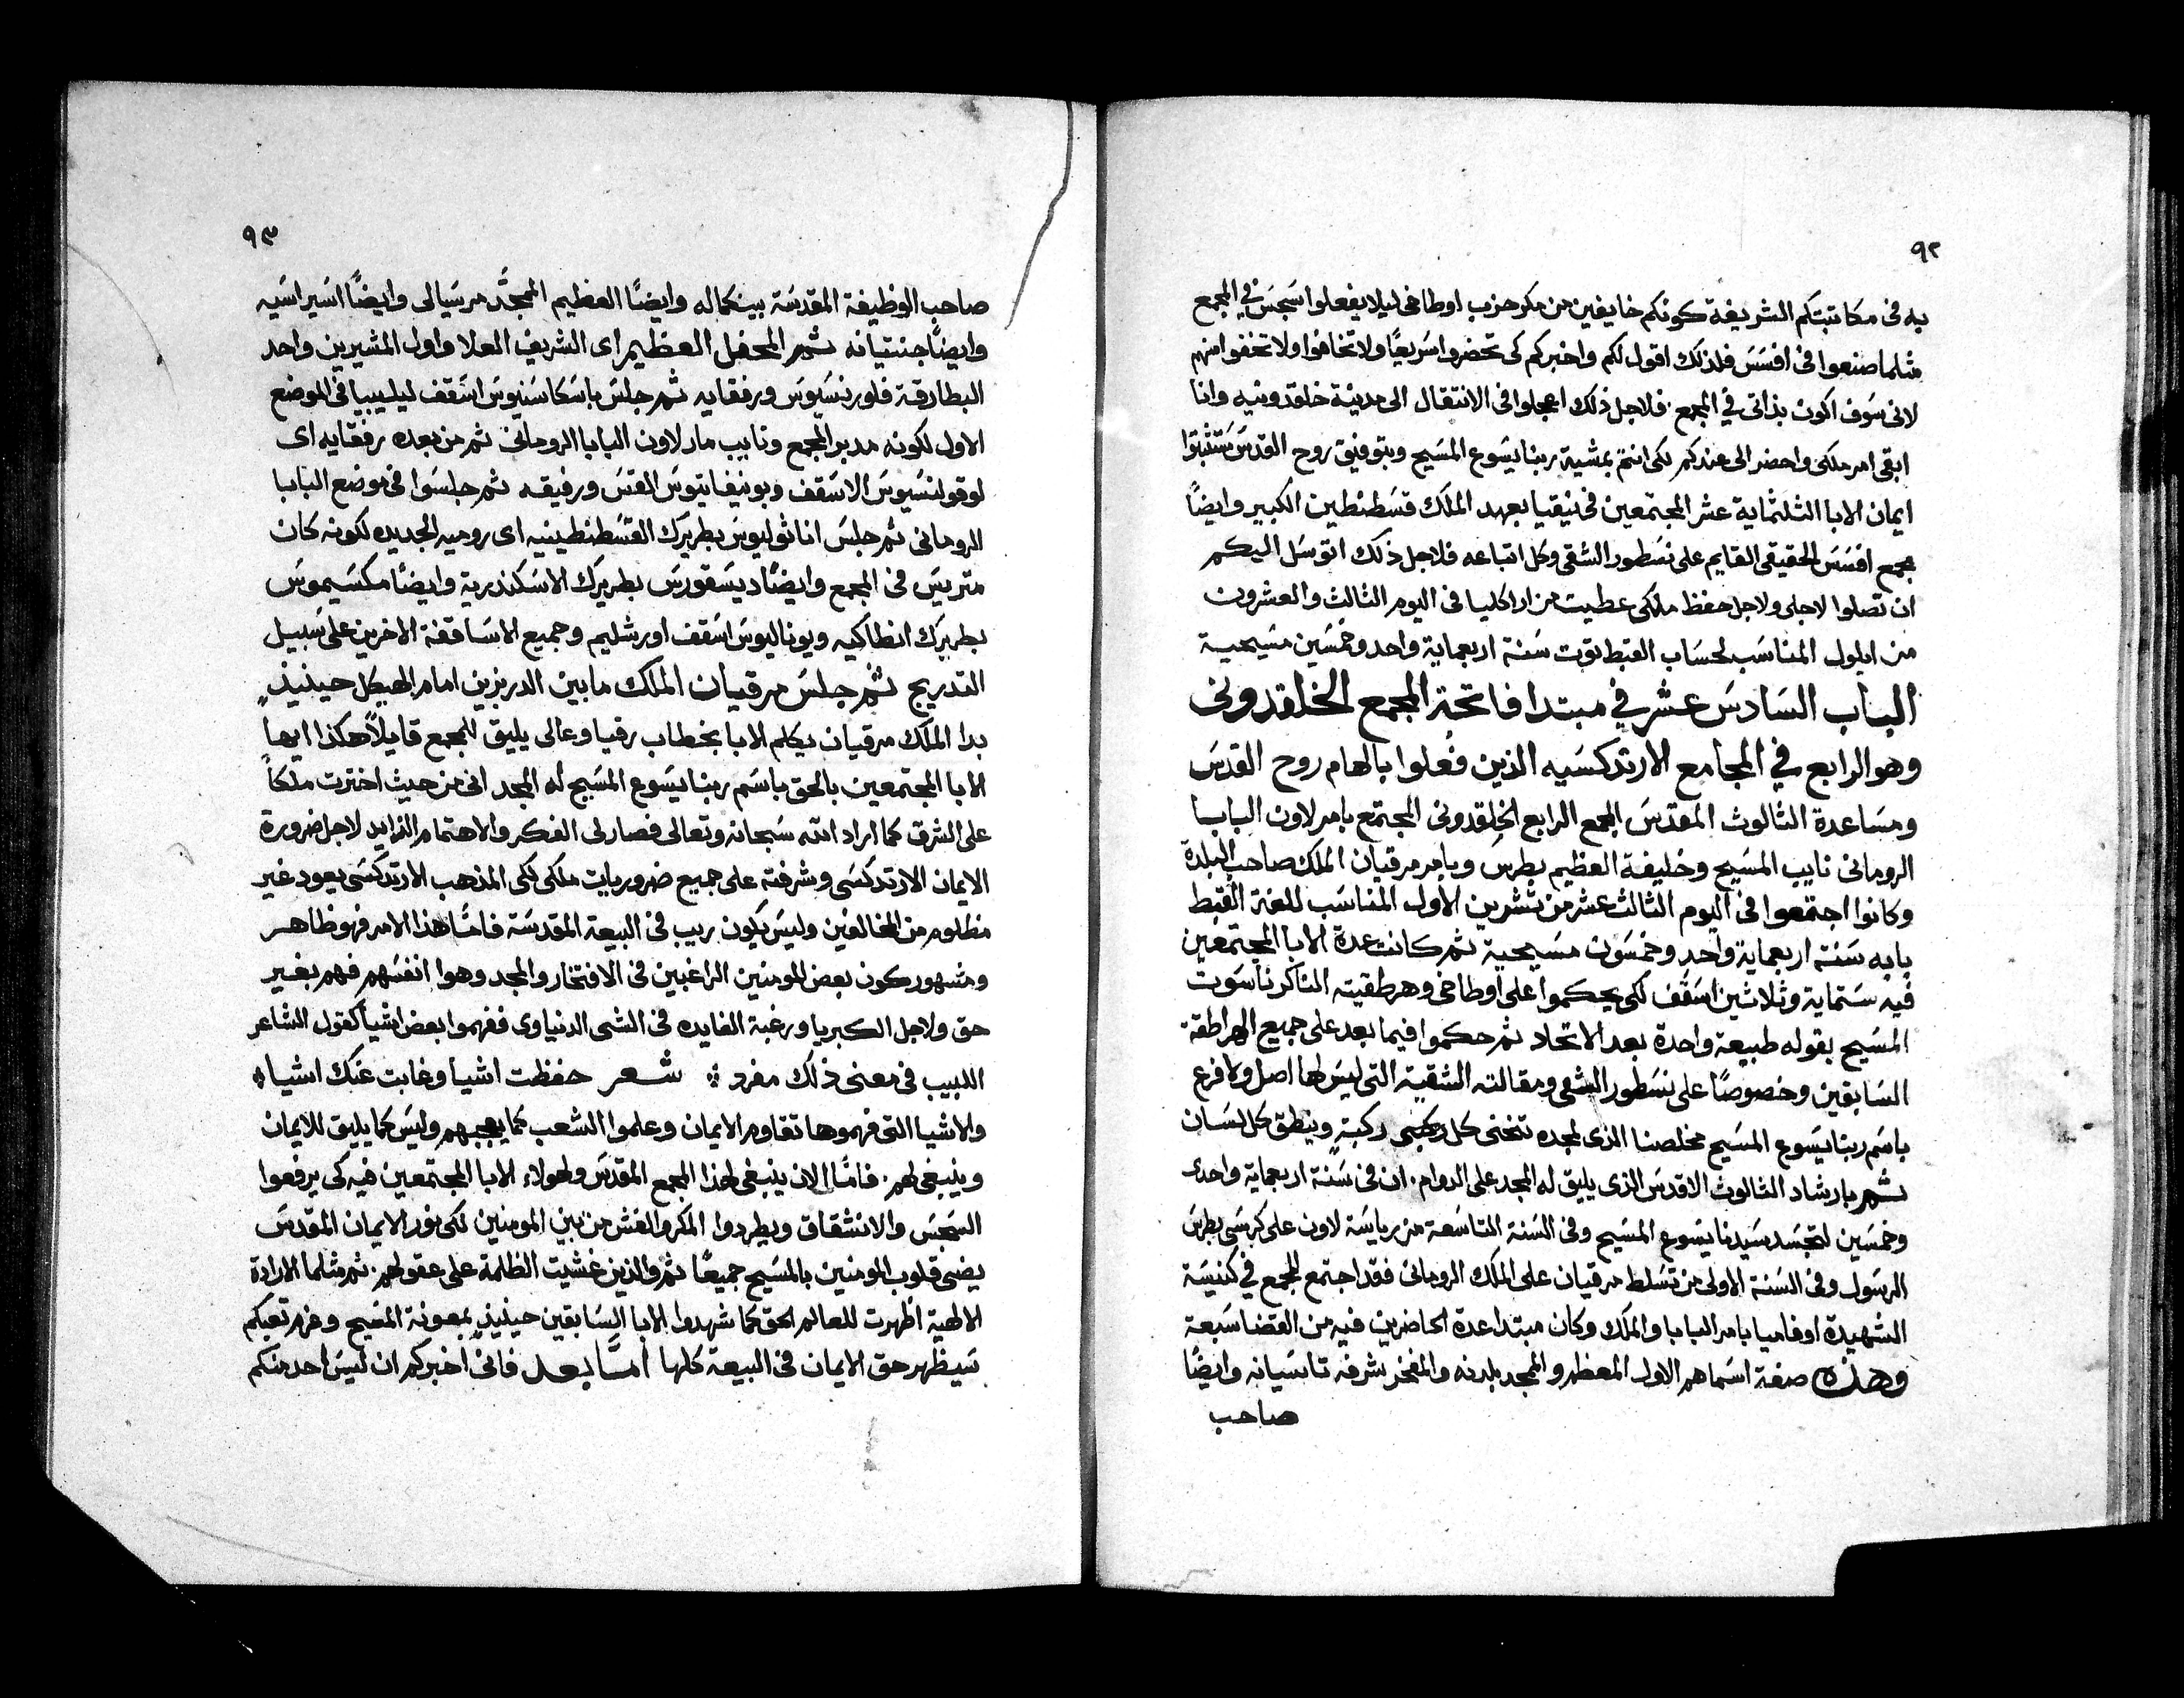 ٩٢
به فى مكاتبتكم الشريفة كونكم خايفين من مكر حزب اوطاخى ليلا يفعلوا سجس فى المجمع
مثلما صنعوا فى افسس فلذلك اقول لكم واخبركم كى تحضروا سريعًا ولا تخافوا ولا تخفوا منهم
لانى سوف اكون بذاتى فى المجمع. فلاجل ذلك اعجلوا فى الانتقال الى مدينة خلقدونيه وانا
ابقى امر ملكى واحضر الى عندكم لكى انتم بمشية ربنا يسوع المسيح وبتوفيق روح القدس تثبتوا
ايمان الابا الثلثماية عشر المجتمعين فى نيقيا بعهد الملك قسطنطين الكبير وايضًا
مجمع افسس الحقيقى القايم على نسطور الشقى وكل اتباعه فلاجل ذلك اتوسل اليكم
ان تصلوا لاجلى ولاجل حفظ ملكى عطيت من اراكليا فى اليوم الثالث والعشرون
من ايلول المناسب لحساب القبط توت سنة اربعماية واحد وخمسين مسيحية
الباب السادس عشر فى مبتدا فاتحة المجمع الخلقدونى
وهو الرابع فى المجامع الارتدكسيه الذين فُعلوا بالهام روح القدس
ومساعدة الثالوث المقدس المجمع الرابع الخلقدونى المجتمع بامر لاون البابا
الرومانى نايب المسيح وخليفة العظيم بطرس وبامر مرقيان الملك صاحب البلدة
وكانوا اجتمعوا فى اليوم الثالث عشر من تشرين الاول المناسب للغة القبط
بابه سنة اربعماية واحد وخمسون مسيحية ثم كانت عدة الابا المجتمعين
فيه ستماية وثلاثين اسقف لكى يحكموا على اوطاخى وهرطقيته الناكر ناسوت
المسيح بقوله طبيعة واحدة بعد الاتحاد ثم حكموا فيما بعد على جميع الهراطقة
السابقين وخصوصًا على نسطور الشقى ومقالته الشقية التى ليس لها اصل ولا فرع
باسم ربنا يسوع المسيح مخلصنا الذى لمجده تنحنى كل ركبة وينطق كل لسان
ثم بارشاد الثالوث الاقدس الذى يليق له المجد على الدوام. ان فى سنة اربعماية واحدى
وخمسين لتجسد سيدنا يسوع المسيح وفى السنة التاسعة من رياسة لاون على كرسى بطرس
الرسول وفى السنة الاولى من تسلط مرقيان على الملك الرومانى فقد اجتمع المجمع فى كنيسة
الشهيدة اوفاميا بامر البابا والملك وكان مبتدا عدة الحاضرين فيه من القضا سبعة
وهذه صفة اسماهم الاول المعظم والمجد بلدنه والمفخر شرفه تاسيانه وايضًا
صاحب
٩٣
صاحب الوظيفة المقدسة بينكماله وايضًا العظيم المجد مرسيالى وايضًا اسيراسيه
وايضًا جنتيانه ثم المحفل العظيم اى الشريف العلا واول المشيرين واحد
البطارقة فلورنسيوس ورفقايه ثم جلس باسكاسنيوس اسقف ليليبيا فى الموضع
الاول لكونه مدبر المجمع ونايب مار لاون البابا الرومانى ثم من بعده رفقايه اى
لوقولنسيوس الاسقف وبونيفاتيوس القس ورفيقه ثم جلسوا فى موضع البابا
الرومانى ثم جلس اناثوليوس بطريرك القسطنطينيه اى روميه الجديده لكونه كان
متريس فى المجمع وايضًا ديسقورس بطريرك الاسكندرية وايضًا مكسيموس
بطريرك انطاكيه ويوناليوس اسقف اورشليم وجميع الاساقفة الاخرين على سبيل
التدريج ثم جلس مرقيان الملك ما بين الدربزين امام الهيكل حينيذٍ
بدا الملك مرقيان يكلم الابا بخطاب رقيا وعالى يليق للمجمع قايلاً هكذا ايها
الابا المجتمعين بالحق باسم ربنا يسوع المسيح له المجد انى من حيث اخترت ملكاً
على الشرق كما اراد الله سبحانه وتعالى فصار لى الفكر والاهتمام الزايد لاجل ضرورة
الايمان الارتدكسى وشرفته على جميع ضروريات ملكى لكى المذهب الارتدكسى يعود غير
مظلوم من المخالفين وليس يكون ريب فى البيعة المقدسة فامّا هذا الامر فهو ظاهر
ومشهور كون بعض المومنين الراغبين فى الافتخار والمجد وهوا انفسهم فهم بغير
حق ولاجل الكبريا ورغبة الفايده فى الشى الدنياوى ففهموا بعض اشيا كقول الشاعر
اللبيب فى معنى ذلك مفرد ⁘ شعر حفظت اشيا وغابت عنك اشيا⁘
والاشيا التى فهموها تقاوم الايمان وعلموا الشعب كما يعجبهم وليس كما يليق للايمان
وينبغى لهم. فامّا الان ينبغى لهذا المجمع المقدس ولهولاء الابا المجتمعين فيه كى يرفعوا
السجس والانشقاق ويطردوا المكر والغش من بين المومنين لكى نور الايمان المقدس
يضى قلوب المومنين بالمسيح جميعًا ثم والذين غشيت الظلمة على عقولهم. ثم مثلما الارادة
الالهية اظهرت للعالم الحق كما شهدوا الابا السابقين حينيذٍ بمعونة المسيح وعزم تعبكم
سيظهر حق الايمان فى البيعة كلها امّا بعد فانى اخبركم ان ليس احد منكم